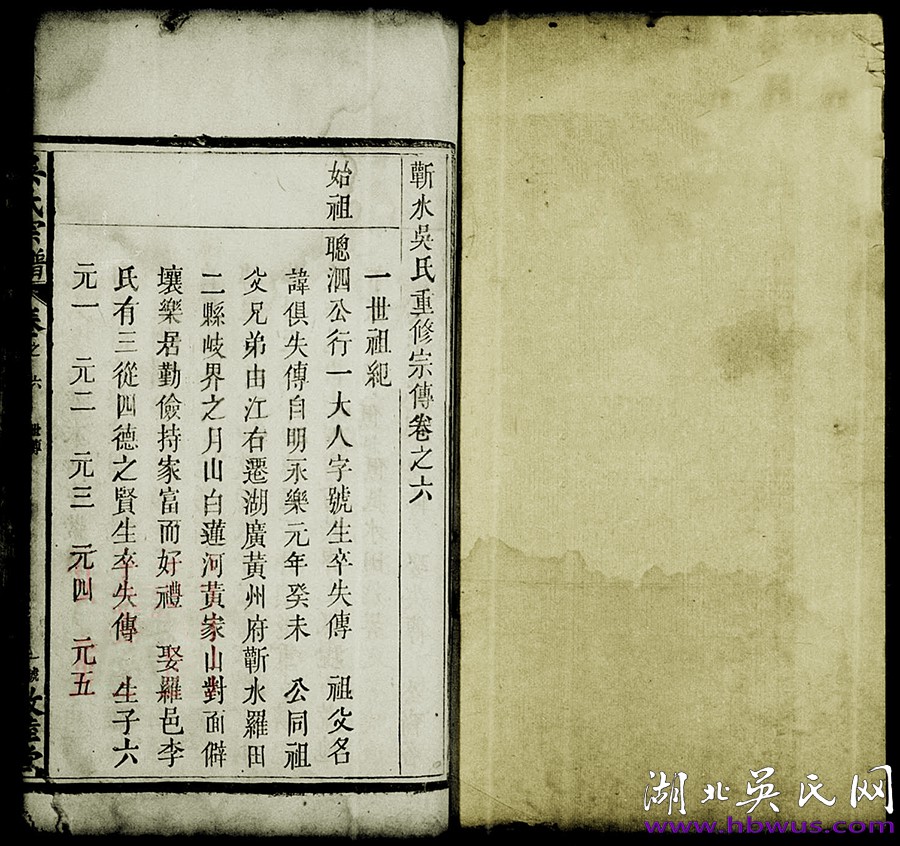 蘄水吳氏重修宗傳卷之六
一世祖紀
始祖 聰泗公行一大人字號生卒失傳 祖父名
諱俱失傳自明永樂元年癸未 公同祖
父兄弟由江右遷湖廣黃州府蘄水羅田
二縣岐界之月山白蓮河黃家山對面僻
壤樂居勤儉持家富而好禮 娶羅邑李
氏有三從四德之賢生卒失傳 生子六
元一 元二 元三 元四 元五
吳氏宗譜 卷之六 世傳
湖北吳氏网
www.hbwus.com